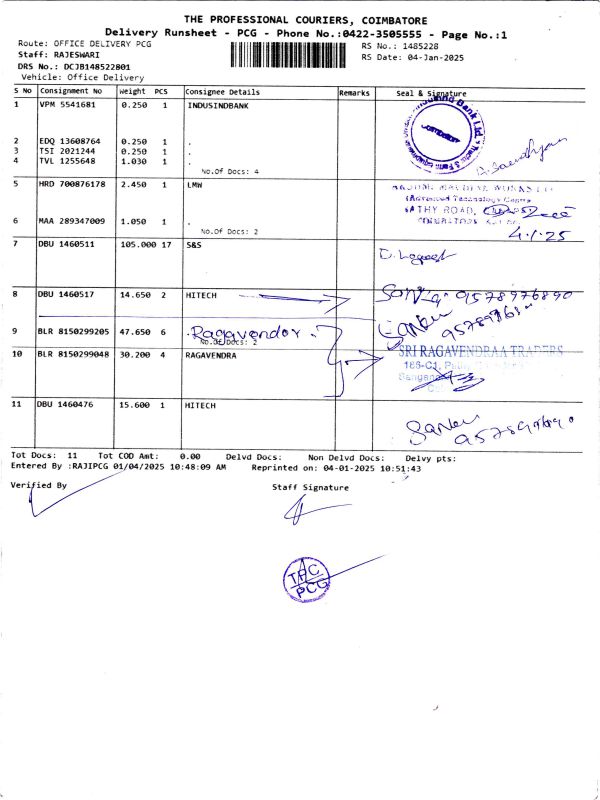 THE PROFESSIONAL COURIERS, COIMBATORE
Delivery Runsheet - PCG - Phone No.:0422-3505555 - Page No.:1
Route: OFFICE DELIVERY PCG
RS No.: 1485228
Staff: RAJESWARI
RS Date: 04-Jan-2025
DRS No.: DCJB148522801
Vehicle: Office Delivery
S No Consignment No Weight PCS Consignee Details Remarks Seal & Signature
1 VPM 5541681 0.250 1 INDUSINDBANK
2 EDQ 13608764 0.250 1 .
3 TSI 2021244 0.250 1 .
4 TVL 1255648 1.030 1 .
No.Of Docs: 4
5 HRD 700876178 2.450 1 LMW
(Advanced Technology Centre
SATHY ROAD,
6 MAA 289347009 1.050 1 .
No.Of Docs: 2
4.1.25
7 DBU 1460511 105.000 17 S&S
8 DBU 1460517 14.650 2 HITECH
9578976890
9 BLR 8150299205 47.650 6 Ragavendor.
No.Of Docs: 2
10 BLR 8150299048 30.200 4 RAGAVENDRA
SRI RAGAVENDRAA TRADERS
11 DBU 1460476 15.600 1 HITECH
Tot Docs: 11 Tot COD Amt: 0.00 Delvd Docs: Non Delvd Docs: Delvy pts:
Entered By :RAJIPCG 01/04/2025 10:48:09 AM Reprinted on: 04-01-2025 10:51:43
Verified By Staff Signature
TPC
PCG